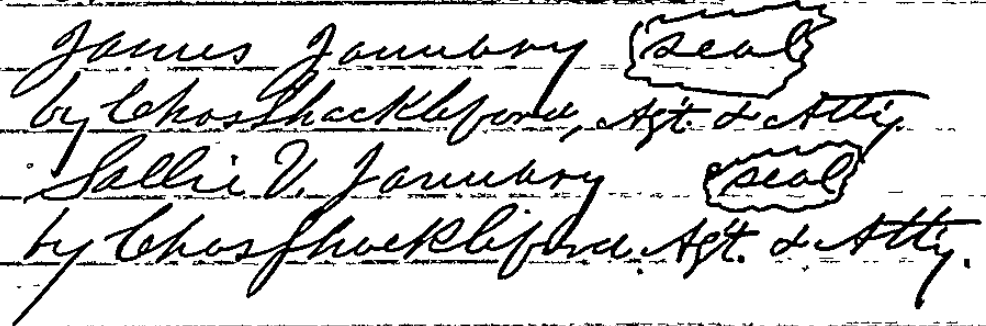 James January seal
by Chas Shackleford, Agt. & Atty.
Sallie V. January seal
by Chas Shackleford. Agt. & Atty.